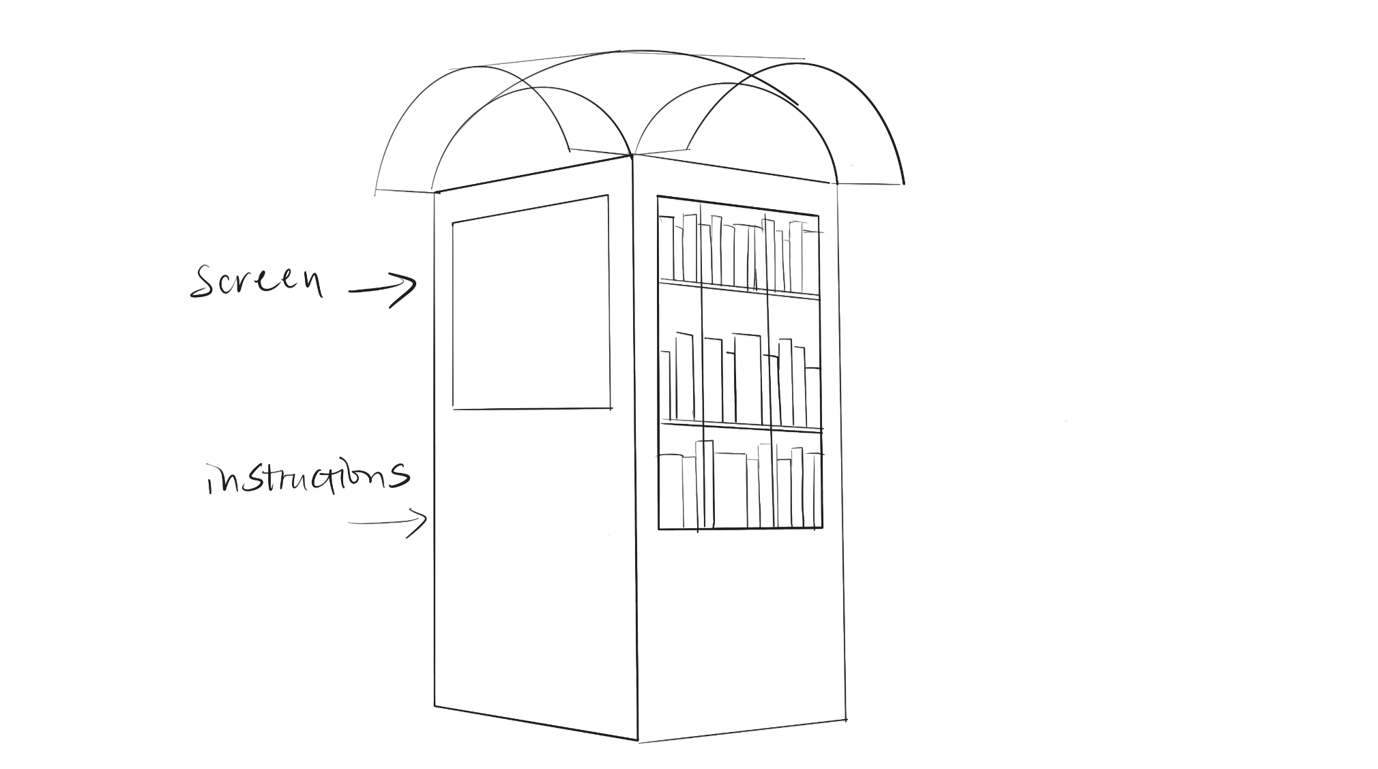 screen
instructions